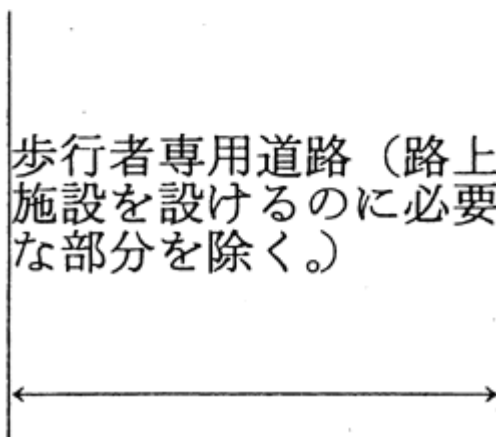 歩行者専用道路（路上
施設を設けるのに必要
な部分を除く。）